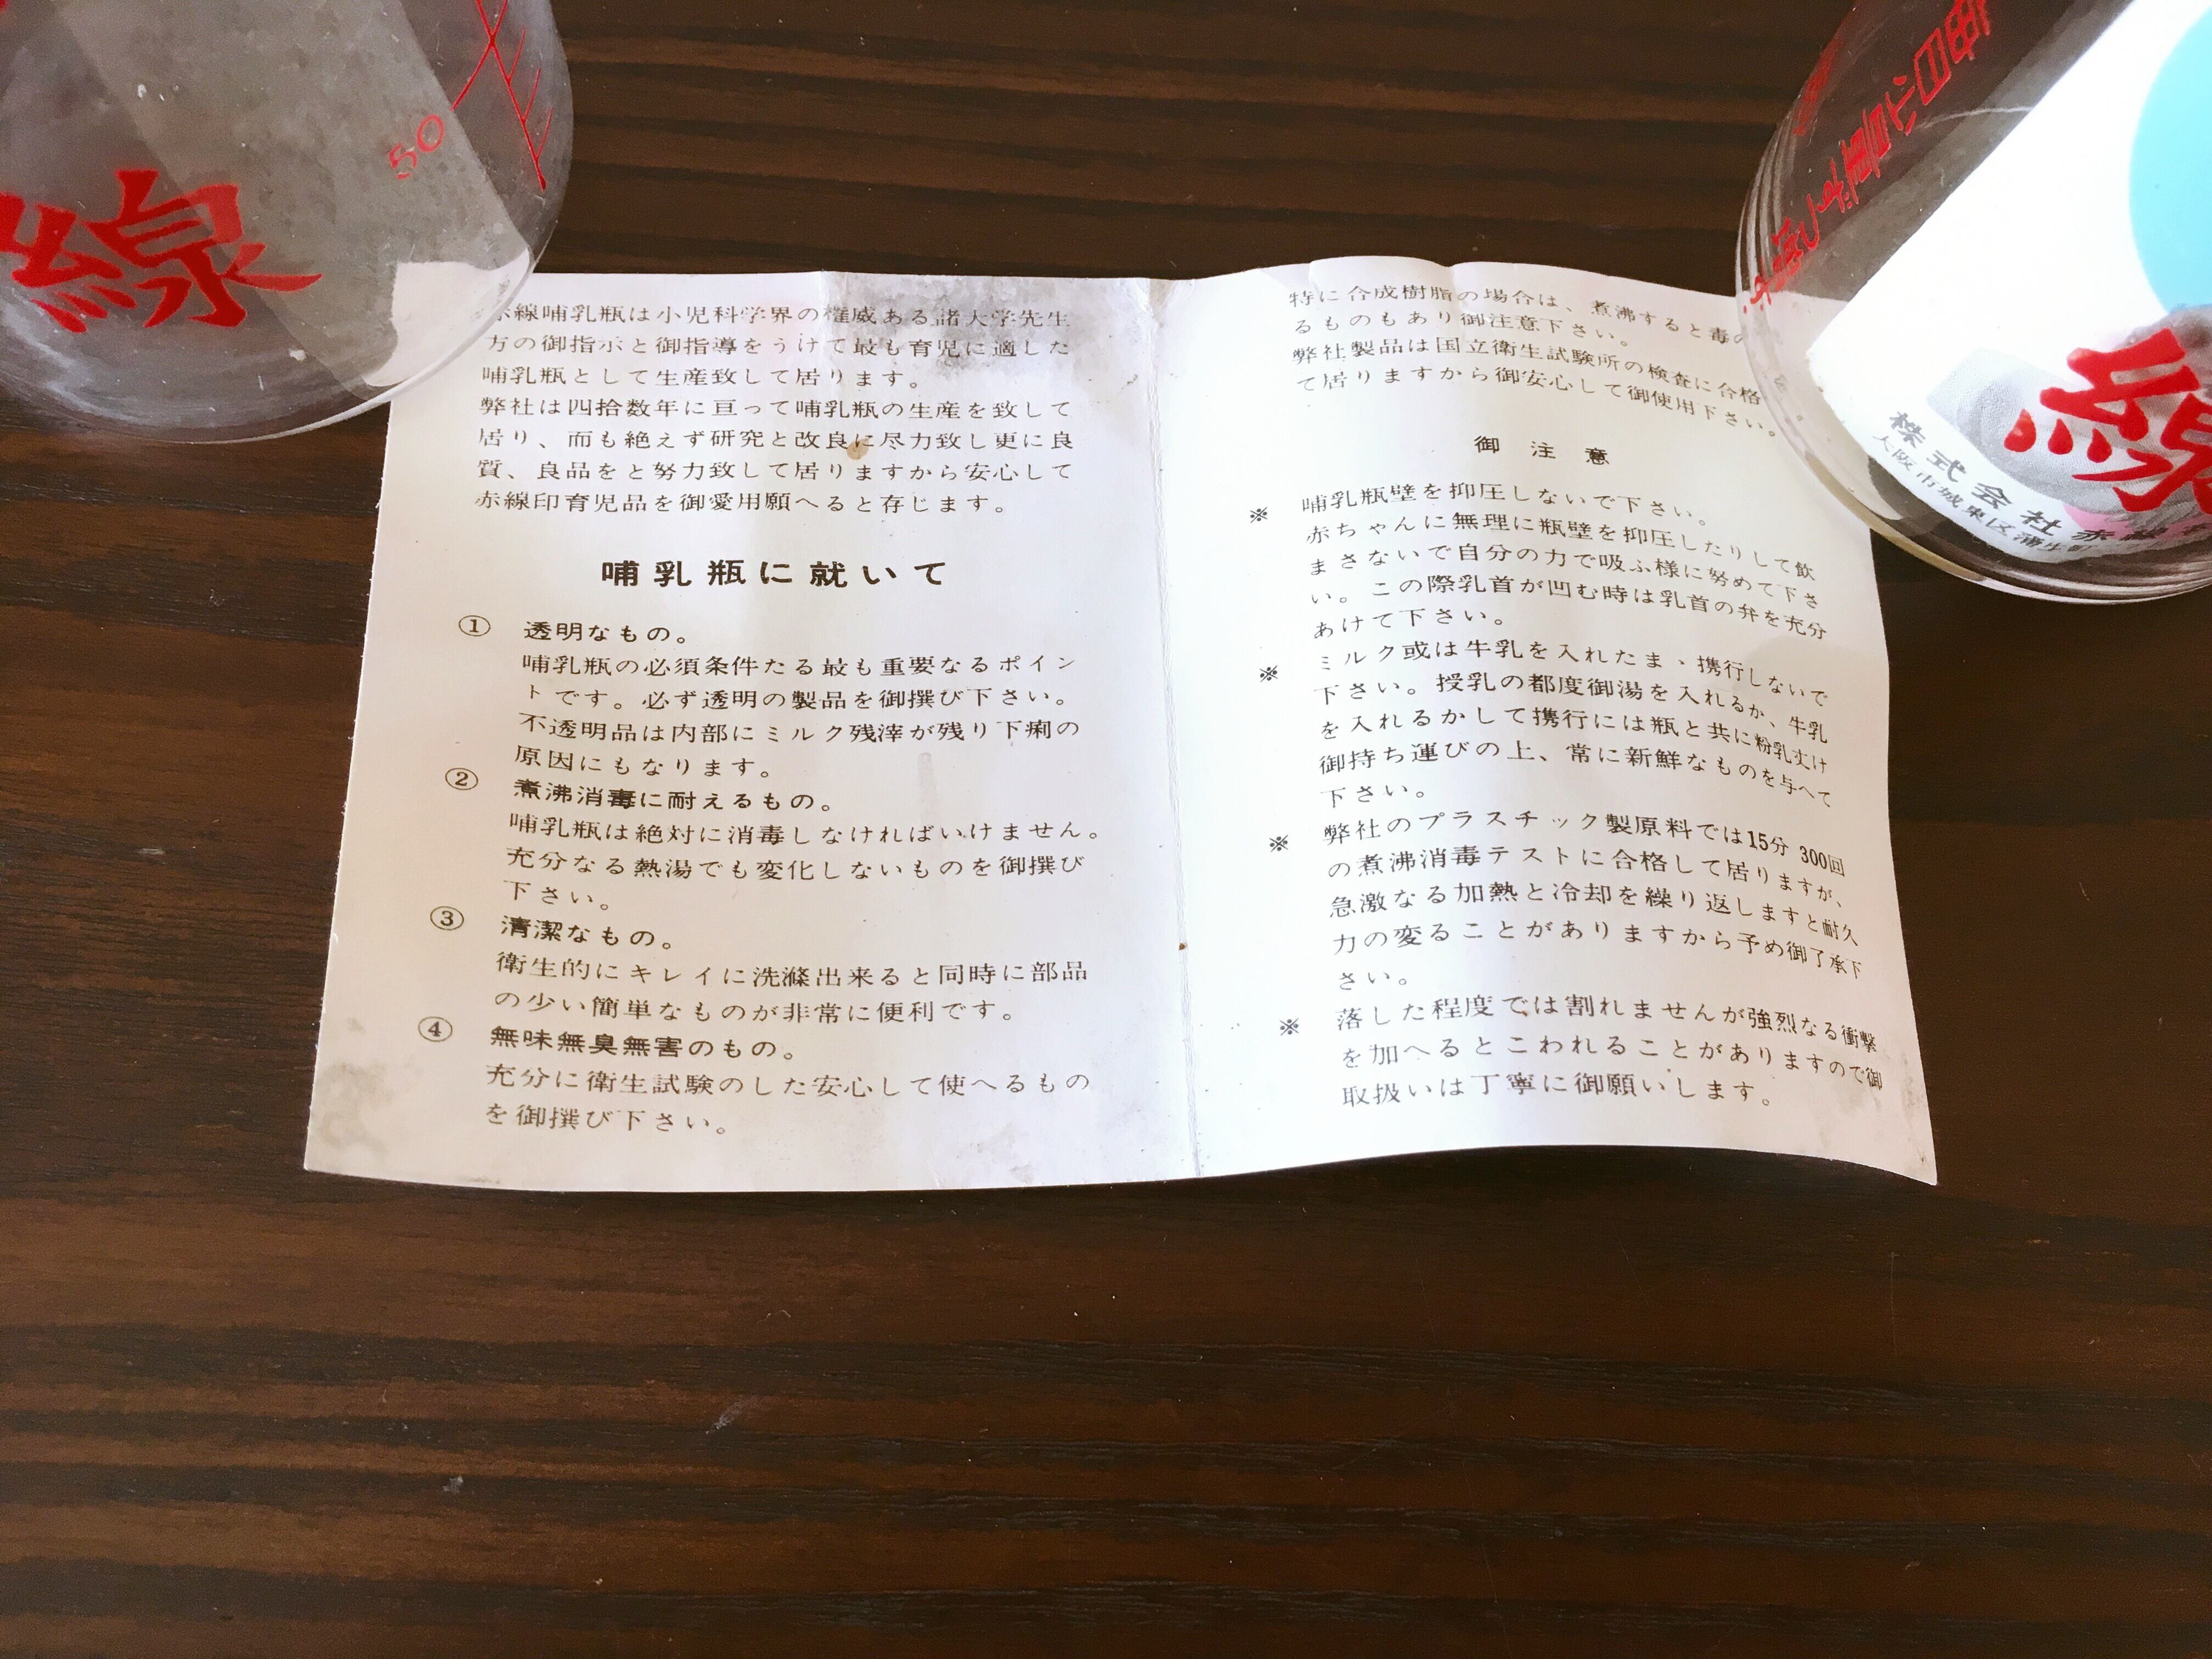 線
50
線哺乳瓶は小児科学界の権威ある諸大学先生
方の御指示と御指導をうけて最も育児に適した
哺乳瓶として生産致して居ります。
弊社は四拾数年に亘って哺乳瓶の生産を致して
居り、而も絶えず研究と改良に尽力致し更に良
質、良品をと努力致して居りますから安心して
赤線印育児品を御愛用願へると存じます。
哺乳瓶に就いて
① 透明なもの。
哺乳瓶の必須条件たる最も重要なるポイン
トです。必ず透明の製品を御撰び下さい。
不透明品は内部にミルク残滓が残り下痢の
原因にもなります。
② 煮沸消毒に耐えるもの。
哺乳瓶は絶対に消毒しなければいけません。
充分なる熱湯でも変化しないものを御撰び
下さい。
③ 清潔なもの。
衛生的にキレイに洗滌出来ると同時に部品
の少い簡単なものが非常に便利です。
④ 無味無臭無害のもの。
充分に衛生試験のした安心して使へるもの
を御撰び下さい。
特に合成樹脂の場合は、煮沸すると毒の
るものもあり御注意下さい。
弊社製品は国立衛生試験所の検査に合格
て居りますから御安心して御使用下さい。
御注意
※ 哺乳瓶壁を抑圧しないで下さい。
赤ちゃんに無理に瓶壁を抑圧したりして飲
まさないで自分の力で吸ふ様に努めて下さ
い。この際乳首が凹む時は乳首の弁を充分
あけて下さい。
※ ミルク或は牛乳を入れたまゝ携行しないで
下さい。授乳の都度御湯を入れるか、牛乳
を入れるかして携行には瓶と共に粉乳丈け
御持ち運びの上、常に新鮮なものを与へて
下さい。
※ 弊社のプラスチック製原料では15分 300回
の煮沸消毒テストに合格して居りますが、
急激なる加熱と冷却を繰り返しますと耐久
力の変ることがありますから予め御了承下
さい。
※ 落した程度では割れませんが強烈なる衝撃
を加へるとこわれることがありますので御
取扱いは丁寧に御願いします。
線
株式会社赤線
大阪市城東区蒲生町